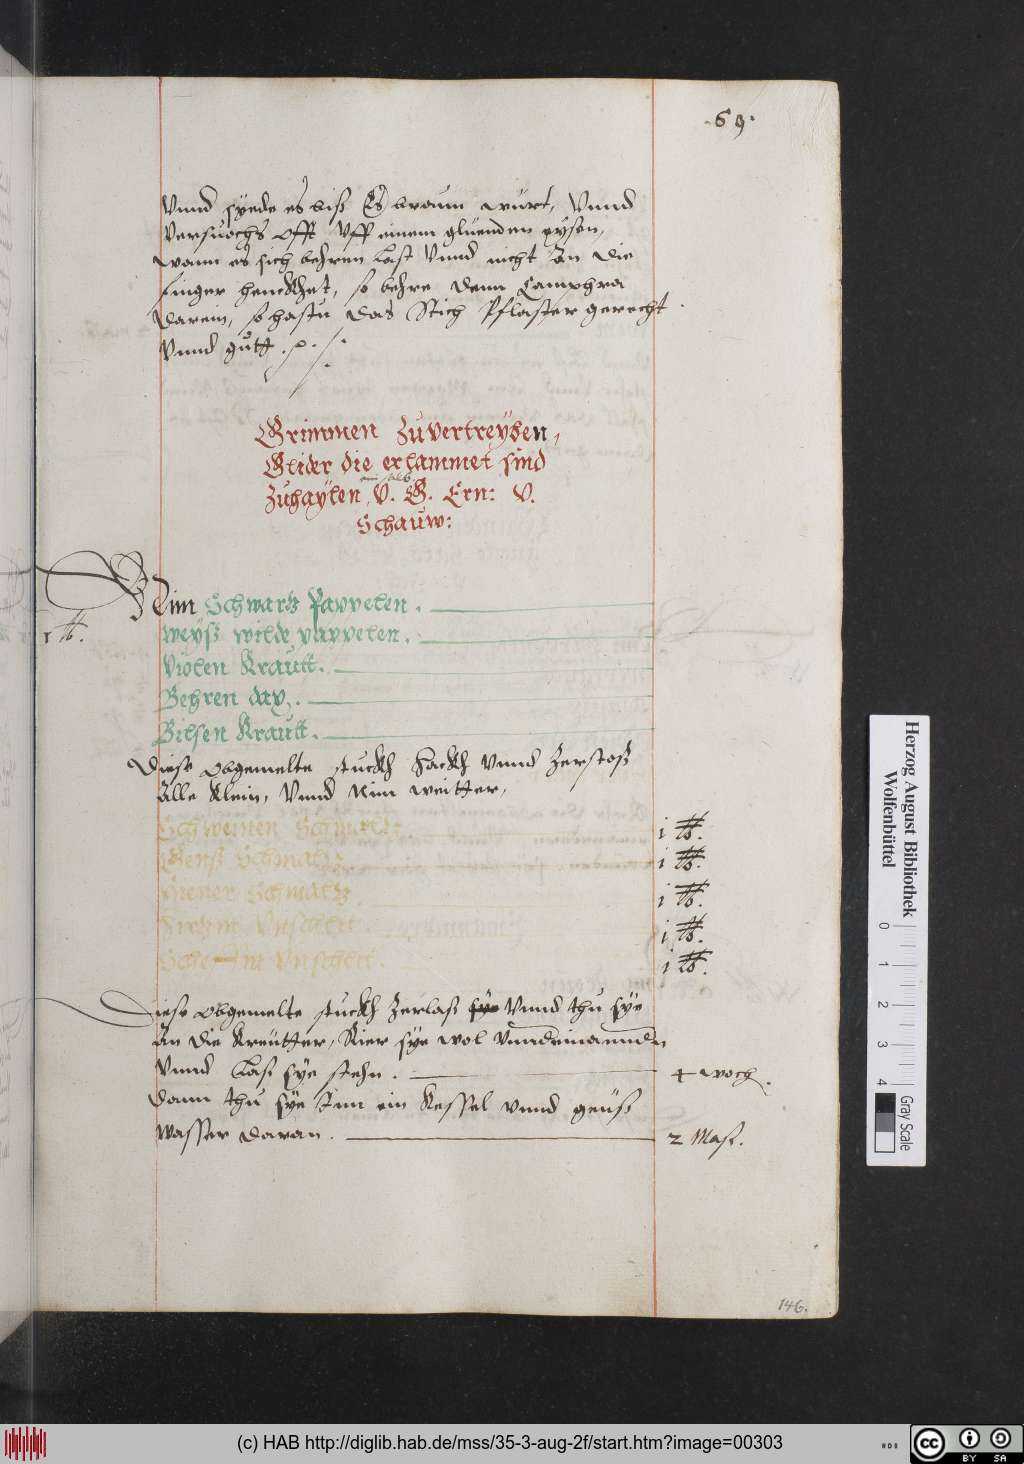 .69.
Vnnd syede es biß Es braun würt, Vnnd
versuochs offt Vff einem gluenden eysen,
wann es sich behren Last Vnnd nicht An die
finger henckhet, so behre denn Camphra
darein, so hastu das Stich Pflaster gerecht
Vnnd gutt
Grimmen Zu vertreyben,
Glider die erlammet sind
Zuhaylen, V. G. Ern: V.
Schauw:
Nim Schwartz Pappelen.
1 ℔. weyß wilde pappelen.
Violen Krautt.
Behren dap.
Bilsen Krautt.
Diese obgemelte stuckh hackh Vnnd Zerstoß
Alle klein, Vnnd Nim weitter,
Schweinen Schmaltz. 1 ℔.
Genß Schmaltz 1 ℔.
Hiener Schmaltz 1 ℔.
Hirtzin Vnschlitt 1 ℔.
Vnschlit. 1 ℔.
Diese obgemelte stuckh Zerlaß sye Vnnd thu sye
An die Kreutter, Rier sye wol Vnndereinannder
Vnnd Las sye stehn. 4 woch.
Dann thu sye Inn ein Kessel vnnd geüß
Wasser daran. 2 Mas.
146.
Herzog August Bibliothek
Wolfenbüttel
0 1 2 3 4
Gray Scale
(c) HAB http://diglib.hab.de/mss/35-3-aug-2f/start.htm?image=00303
cc BY SA